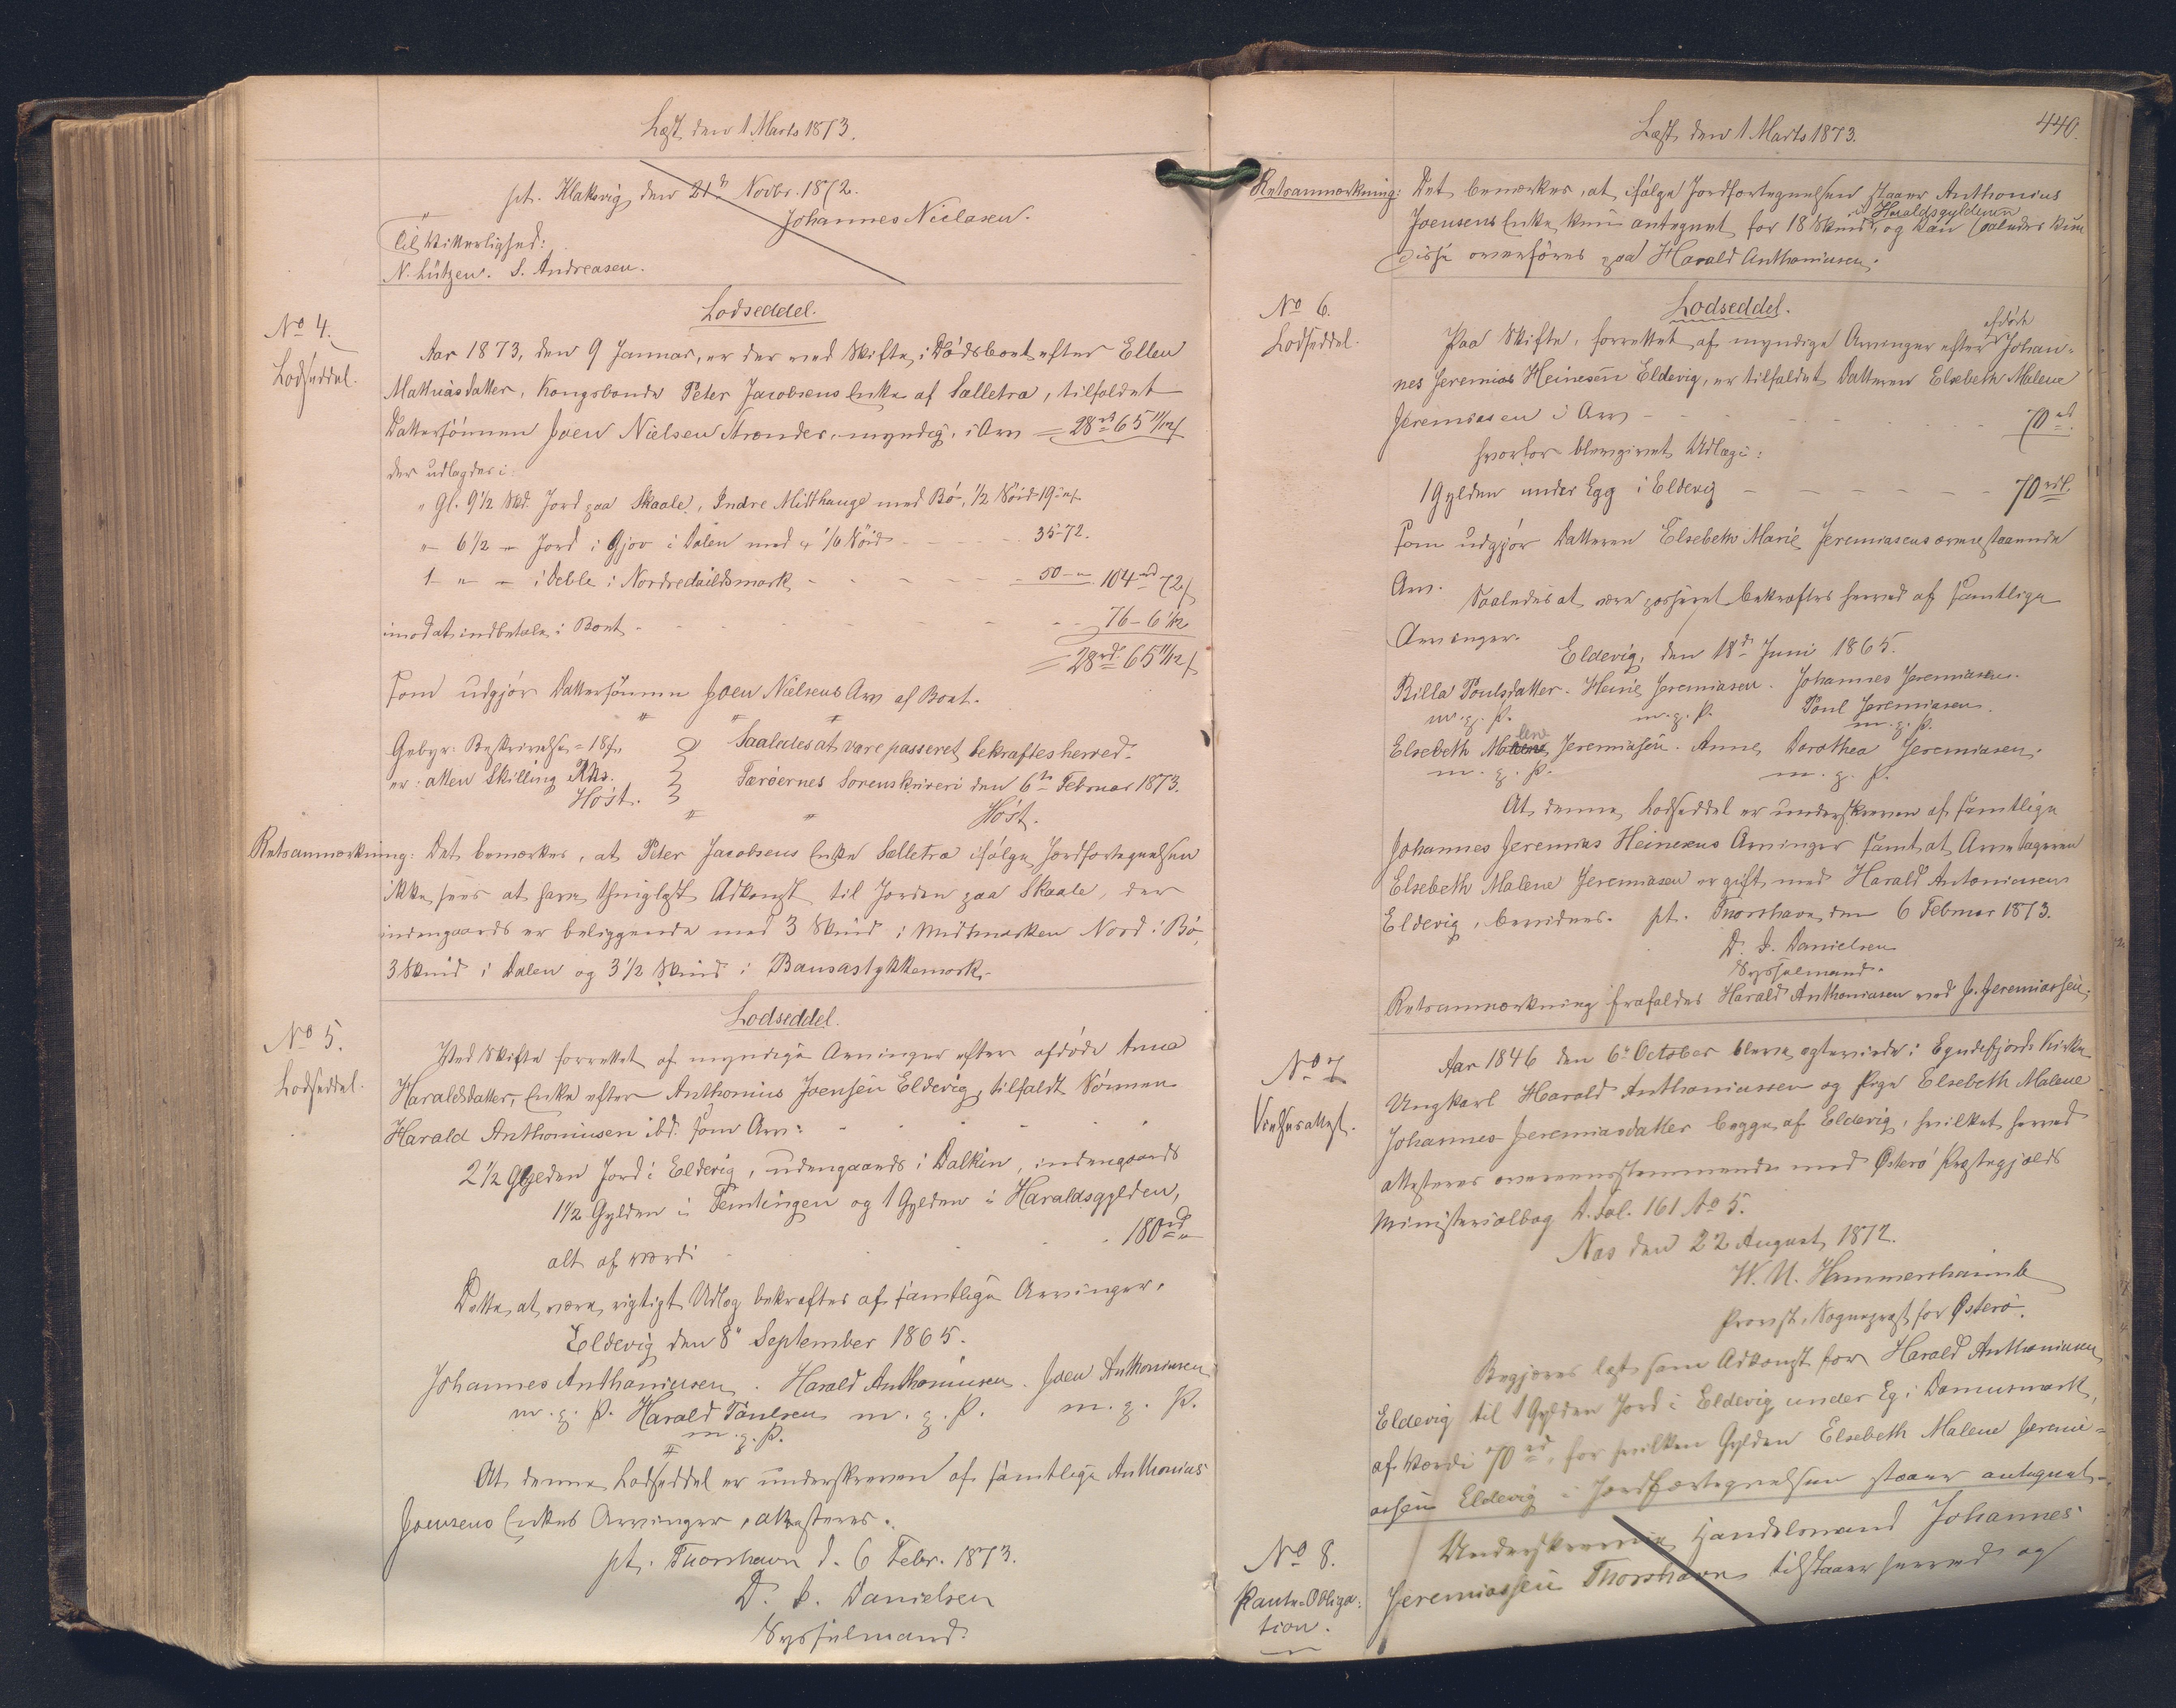 Læst den 1 Marts 1873.
pt. Klaksvig den 21de Novbr. 1872.
Johannes Nielasen.
Til Vitterlighed:
N. Lützen. S. Andreasen.
No 4.
Lodseddel.
Lodseddel.
Aar 1873, den 9 Januar, er der ved Skifte i Dødsboet efter Ellen
Mathiasdatter, Kongsbonde Peter Jacobsens Enke af Selletræ, tilfaldet
Dattersønnen Joen Nielsen Strender, myndig, i Arv = 28 rd 65 11/12 ß
der udlagdes i:
" Gl. 9 1/2 Skd. Jord paa Skaale, Indre Mitthauge med Bø, 1/2 Nøid 19 " "
" - 6 1/2 - Jord i Gjov i Dalen med 1/6 Nøid - - 35-72.
1 - " - i Deble i Nordredaildsmark - - - 50 - " 104 rd 72 ß
imod at indbetale i Boet - - - 76 - 6 1/12
= 28 rd. 65 11/12 ß
som udgjør Dattersønnen Joen Nielsens Arv af Boet.
Gebyr: Beskrivelse = 18 ß,
er: atten Skilling Rm.
Høst.
Saaledes at være passeret, bekræftes herved.
Færøernes Sorenskriveri den 6te Februar 1873.
Høst.
Retsanmærkning: Det bemærkes, at Peter Jacobsens Enke Selletræ ifølge Jordfortegnelsen
ikke sees at have thinglæst Adkomst til Jorden paa Skaale, der
indengaards er beliggende med 3 Skind i Midtmarken Nord i Bø,
3 Skind i Dalen og 3 1/2 Skind i Bausastykkemark.
No 5.
Lodseddel.
Lodseddel.
Ved Skifte forrettet af myndige Arvinger efter afdøde Anna
Haraldsdatter, Enke efter Anthonius Joensen Eldevig, tilfaldt Sønnen
Harald Anthoniusen ibd. som Arv:
2 1/2 Gylden Jord i Eldevig, udengaards i Dalkin, indengaards
1 1/2 Gylden i Temtingen og 1 Gylden i Haraldsgylden,
alt af Værdi - - 180 rd "
Dette at være rigtigt Udlæg bekræftes af samtlige Arvinger.
Eldevig den 8de September 1865.
Johannes Anthoniusen. Harald Anthoniusen. Joen Anthoniusen
m. g. P. Harald Poulsen m. g. P. m. g. P.
m. g. P.
At denne Lodseddel er underskreven af samtlige Anthonius
Joensens Enkes Arvinger, attesteres.
pt. Thorshavn d. 6 Febr. 1873.
D. J. Danielsen
Sysselmand.
Læst den 1 Marts 1873.
440.
Retsanmærkning: Det bemærkes, at ifølge Jordfortegnelsen staaer Anthonius
Joensens Enke kun antegnet for 18 Skind i Haraldsgylden, og kan saaledes kun
disse overføres paa Harald Anthoniusen.
No 6.
Lodseddel.
Lodseddel.
Paa Skifte, forrettet af myndige Arvinger efter afdøde Johan-
nes Jeremias Heinesen Eldevig, er tilfaldet Datteren Elsebeth Malene
Jeremiasen i Arv - - - 70 rd.
hvorfor blev givet Udlæg i:
1 Gylden under Egg i Eldevig - - - - - - 70 rdl.
som udgjør Datteren Elsebeth Marie Jeremiasens ovenstaaende
Arv.
Saaledes at være passeret bekræftes herved af samtlige
Arvinger.
Eldevig, den 18de Juni 1865.
Billa Poulsdatter. Heine Jeremiasen. Johannes Jeremiasen.
m. g. P. m. g. P. Poul Jeremiasen.
m. g. P.
Elsebeth Malene Jeremiasen. Anne Dorothea Jeremiasen.
m. g. P. m. g. P.
At denne Lodseddel er underskreven af samtlige
Johannes Jeremias Heinesens Arvinger samt at Arvetageren
Elsebeth Malene Jeremiasen er gift med Harald Antoniusen
Eldevig, bevidnes. pt. Thorshavn den 6 Februar 1873.
D. J. Danielsen
Sysselmand.
Retsanmærkning frafaldes Harald Anthoniusen ved J. Jeremiassen.
No 7.
Vielsesattest.
Aar 1846 den 6te October bleve ægteviede i Eyndefjords Kirke
Ungkarl Harald Anthoniussen og Pige Elsebeth Malene
Johannes Jeremiasdatter begge af Eldevig, hvilket herved
attesteres overensstemmende med Østerø Præstegjælds
Ministerialbog A. Fol. 161 No 5.
Nes den 22 August 1872.
W. U. Hammershaimb
Provst, Sognepræst for Østerø.
Begjæres læst som Adkomst for Harald Anthoniusen
Eldevig til 1 Gylden Jord i Eldevig under Eg i Domusmark,
af Værdi 70 rd, for hvilken Gylden Elsebeth Malene Jeremi-
assen Eldevig i Jordfortegnelsen staaer antegnet.
No 8.
Pante-Obliga-
tion.
Underskrevne Handelsmand Johannes
Jeremiassen Thorshavn tilstaaer herved og